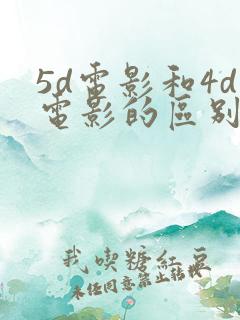 5d電影和4d
電影的區别
我喫糖紅豆
未经同意禁止转载